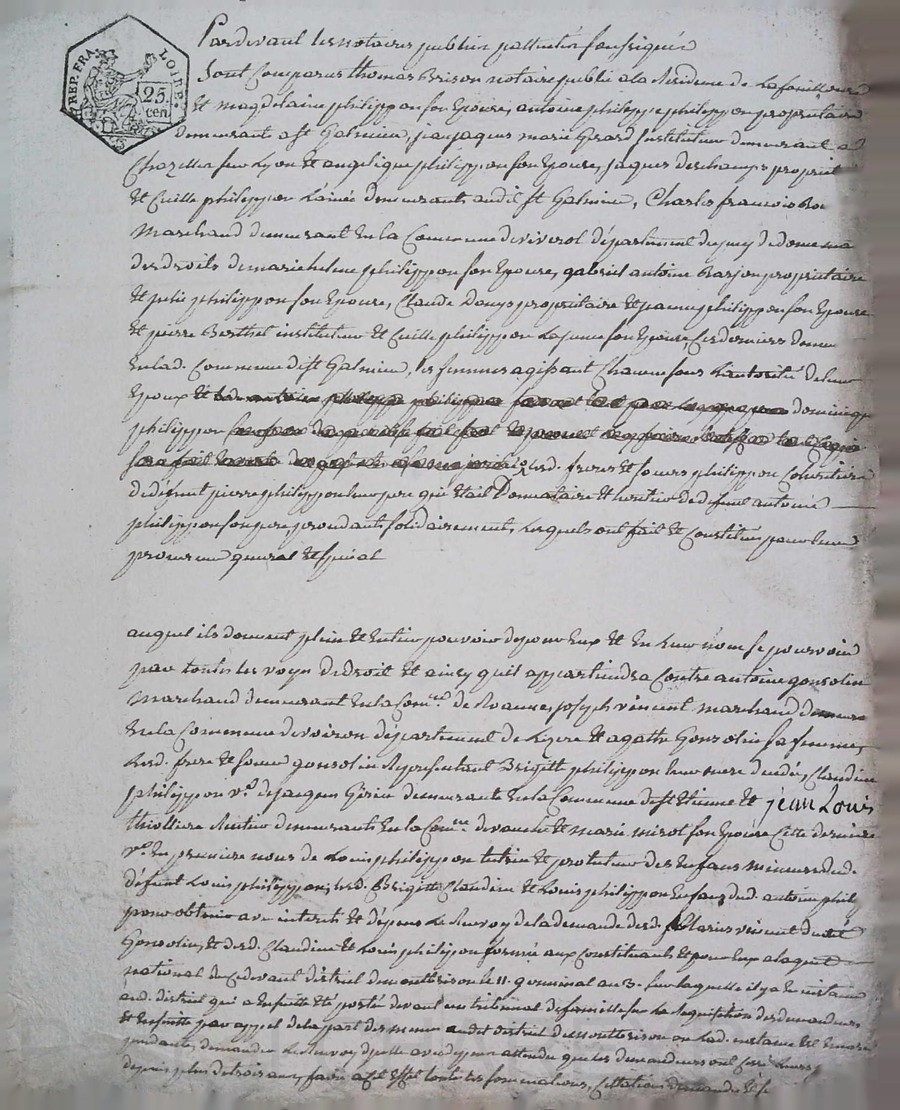 REP. FRA.
LOIRE.
25.
cen.
Pardevant les notaires publics patentés soussignés
Sont Comparus thomas Brison notaire public a la Residence de Lafouillouse
Et magdelaine philippon son Epouse, antoine philippe philippon propriétaire
demeurant a St Galmier, jean jaques marie Gerard Instituteur demeurant a
Chazelles sur Lyon Et angelique philippon son Epouse, jaques deschamps propriet
Et Cécille philippon Lainée demeurants audit St Galmier, Charles francois
Marchand demeurant En la Commune de viverol département du puy de dome
des droits de marie helene philippon son Epouse, gabriel antoine Barjon propriétaire
Et julie philippon son Epouse, Claude Denys propriétaire Et jeanne philippon son Epouse
Et pierre Berthet instituteur Et Cécille philippon La jeune son Epouse, Ces derniers demeu
En lad. Commune de St Galmier, les femmes agissant Chacune sous L'autorité de leur
Epoux Et dominique
philippon
lesd. freres Et soeurs philippon Coheritiers
de défunt pierre philippon leur pere qui Etait Donnataire Et heritier de défunt antoine
philippon son pere, procedants solidairement, Lesquels ont fait Et Constitués pour leur
procureur général Et spécial
auquel ils donnent plein Et Entier pouvoir de pour Eux Et En leur nom se pourvoir
par toutes les voyes de droit Et ainsy qu'il appartiendra Contre antoine gonsolin
marchand demeurant En la Com.ne de Roanne, joseph vincent marchand demeur
En la Commune de voiron département de Lizere Et agathe Gonsolin sa femme,
Lesd. frere Et soeur gonsolin Représentant Brigitte philippon leur mere décédée, Claudine
philippon v.e de jacques Gerin demeurante En la Commune de St Etienne Et jean Louis
thiolliere Rentier demeurants En la Com.ne de Et marie mirol son Epouse Cette derniere
v.e En premiere noces de Louis philippon tutrice Et protuteur des Enfans mineurs dud.
défunt Louis philippon; lesd. Brigitte, Claudine Et Louis philippon Enfans dud. antoine philip
pour obtenir avec interets Et dépens Le Renvoy de la demande desd. mariés vincent dudit
Gonsolin, Et desd. Claudine Et Louis philippon formée aux Constituants Et pour Eux a laquet
national du Cidevant district de montbrison le 11 germinal an 3. sur laquelle il y a Eu instance
aud. district qui a Ensuitte Eté portée devant un tribunal de famille sur la Requisition des demandeurs
Et Ensuitte par appel de la part des memes audit district de montbrison ou Lad. instance Est Encore
pendante, demander Le Renvoy d'icelle avec dépens attendu que les demandeurs ont Cessé Leurs
depuis plus de trois ans, faire a Cet Effet toutes les sommations, Cittations, demandes Et